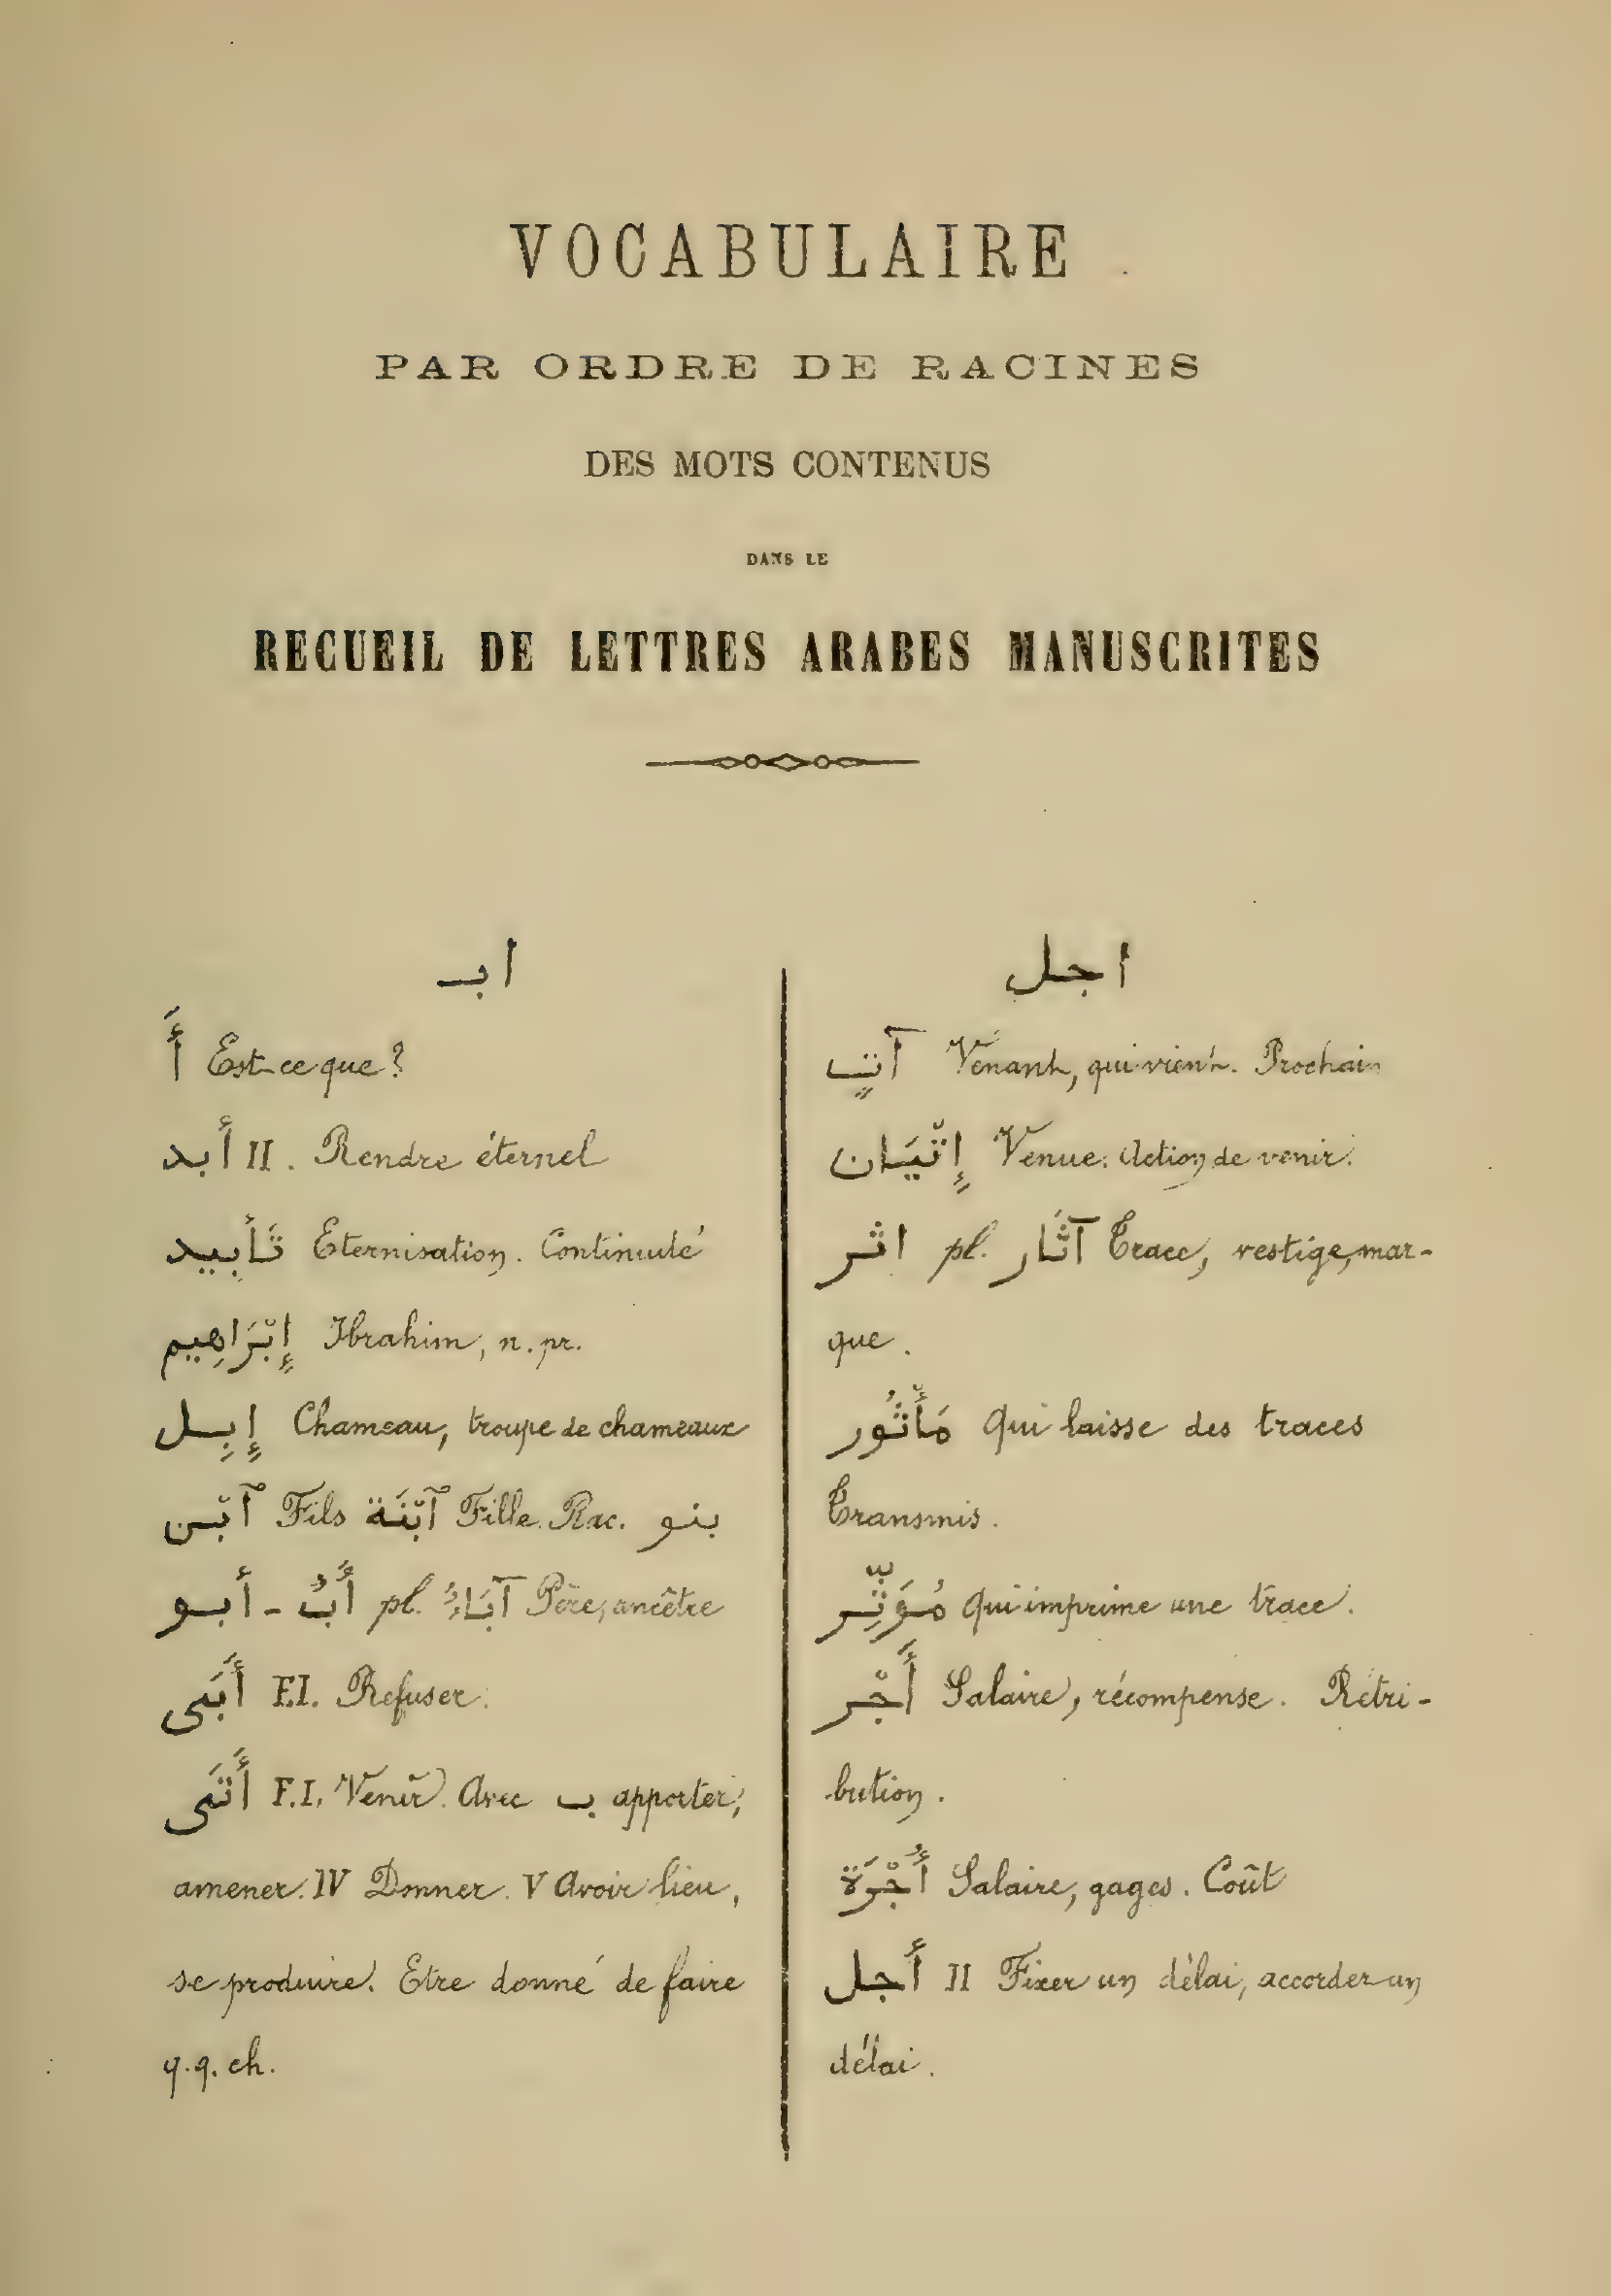 VOCABULAIRE
PAR ORDRE DE RACINES
DES MOTS CONTENUS
DANS LE
RECUEIL DE LETTRES ARABES MANUSCRITES
ابـ
أَ Est-ce que?
أبد II. Rendre éternel
تَأبِيد Eternisation. Continuité
إِبْرَاهِيم Ibrahim, n. pr.
إِبِل Chameau, troupe de chameaux
آبْن Fils آبْنَة Fille. Rac. بنو
أبو - أَبٌ pl. آبَاءُ Père, ancêtre
أَبَى F.I. Refuser.
أَتَى F.I. Venir. Avec ب apporter,
amener. IV Donner. V Avoir lieu,
se produire. Etre donné de faire
q.q. ch.
اجل
آتٍ Venant, qui vient. Prochain
إِتْيَان Venue. Action de venir.
اثر pl. آثَار Trace, vestige, mar-
que.
مَأْثُور Qui laisse des traces
Transmis.
مُوَثِّر Qui imprime une trace.
أَجْر Salaire, récompense. Rétri-
bution.
أُجْرَة Salaire, gages. Coût
أجل II Fixer un délai, accorder un
délai.